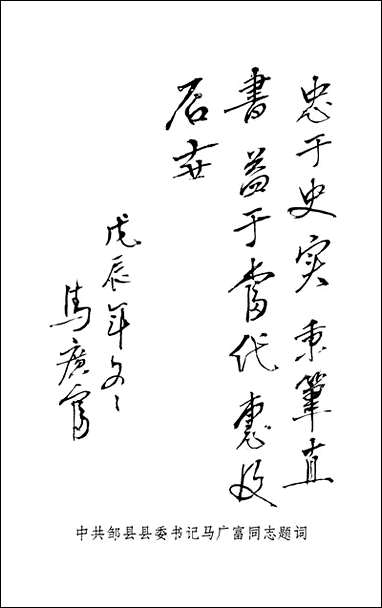 忠于史实 秉筆直
書 益于當代 惠及
后世
戊辰年冬
馬廣富
中共邹县县委书记马广富同志题词